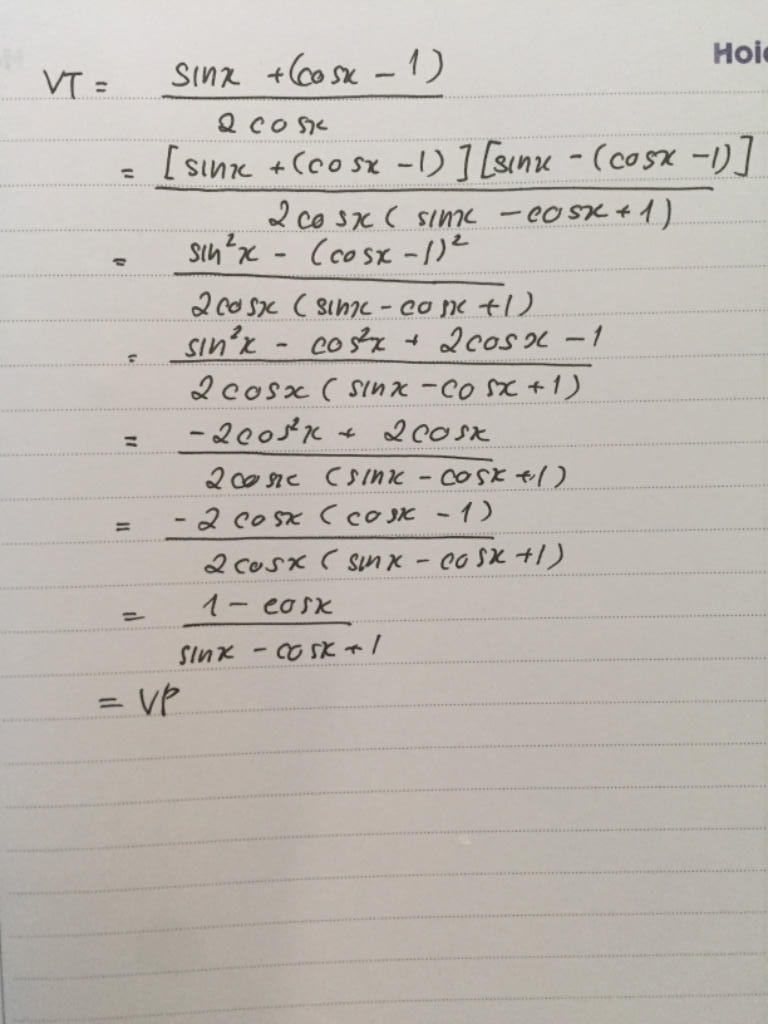 Hoi
VT = (sinx + (cosx - 1)) / (2cosx)
= ([sinx + (cosx - 1)][sinx - (cosx - 1)]) / (2cosx(sinx - cosx + 1))
= (sin²x - (cosx - 1)²) / (2cosx(sinx - cosx + 1))
= (sin²x - cos²x + 2cosx - 1) / (2cosx(sinx - cosx + 1))
= (-2cos²x + 2cosx) / (2cosx(sinx - cosx + 1))
= (-2cosx(cosx - 1)) / (2cosx(sinx - cosx + 1))
= (1 - cosx) / (sinx - cosx + 1)
= VP